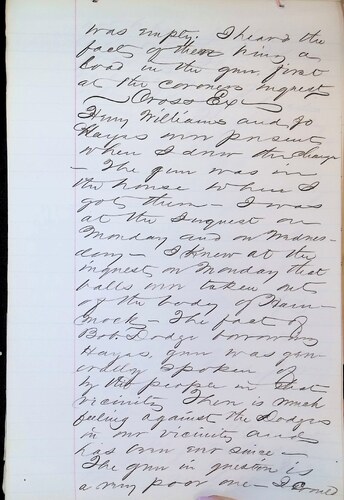 was empty. I heard the
fact of there being a
load in the gun, first
at the coroners inquest
Cross Ex
Henry Williams and Jo
Hayes were present
when I drew the charge
- The gun was in
the house when I
got there - I was
at the Inquest on
Monday and on Wednes-
day - I knew at the
inquest on Monday that
balls were taken out
of the body of Ham-
mock - The fact of
Bob. Dodge borrowing
Hayes, gun was gen-
erally spoken of
by the people in that
vicinity There is much
feeling against the Dodges
in our vicinity and
has been ever since -
The gun in question is
a very poor one - I